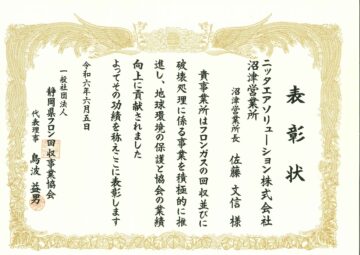 表彰状
ニッタエアソリューション株式会社
沼津営業所
沼津営業所長　佐藤　文信　様
貴事業所はフロンガスの回収並びに
破壊処理に係る事業を積極的に推
進し、地球環境の保護と協会の業績
向上に貢献されました
よってその功績を称えここに表彰します
令和六年六月五日
一般社団法人
静岡県フロン回収事業協会
代表理事　鳥波　益男